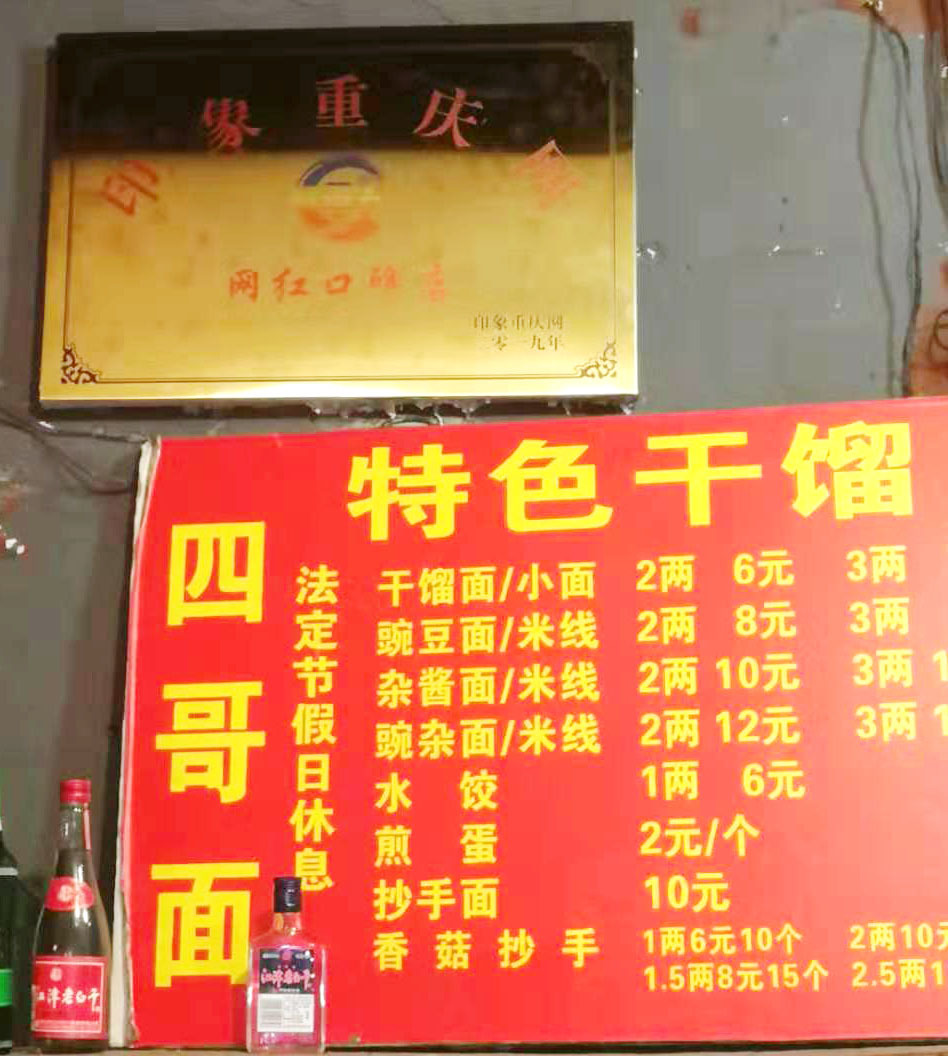 印象重庆网
网红口碑店
印象重庆网
二零一九年
特色干馏
四哥面
法定节假日休息
干馏面/小面 2两 6元 3两
豌豆面/米线 2两 8元 3两
杂酱面/米线 2两 10元 3两 1
豌杂面/米线 2两 12元 3两 1
水饺 1两 6元
煎蛋 2元/个
抄手面 10元
香菇抄手 1两6元10个 2两10元
1.5两8元15个 2.5两1
江津老白干
江津老白干